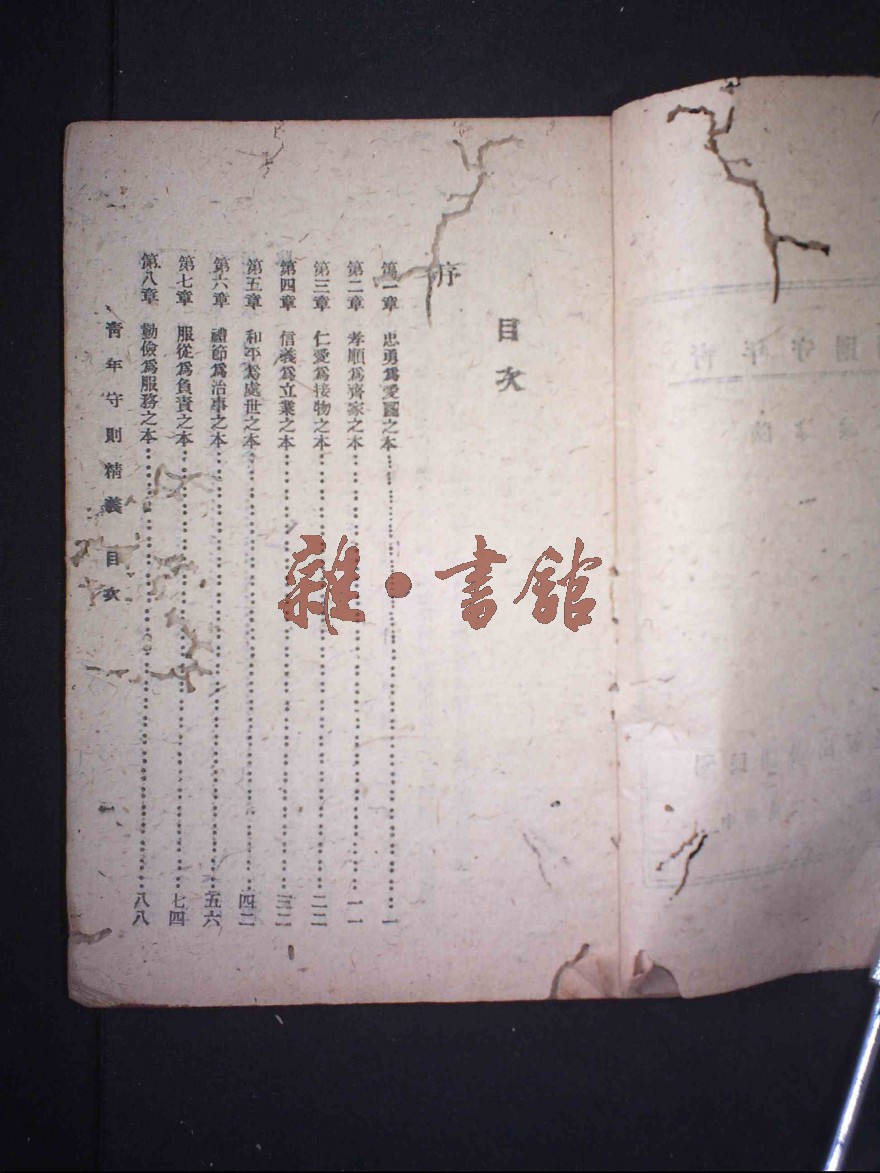 目次
序
第一章 忠勇爲愛國之本 一
第二章 孝順爲齊家之本 一一
第三章 仁愛爲接物之本 二二
第四章 信義爲立業之本 三二
第五章 和平爲處世之本 四二
第六章 禮節爲治事之本 五六
第七章 服從爲負責之本 七四
第八章 勤儉爲服務之本 八八
青年守則精義 目次
雜·書館